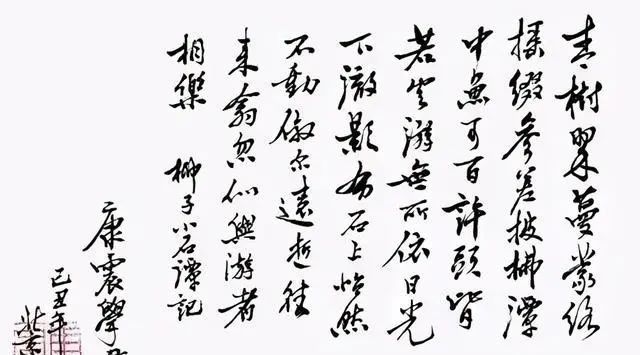 青樹翠蔓蒙络
摇缀參差披拂潭
中魚可百許頭皆
若空游無所依日光
下澈影布石上怡然
不動俶尔遠逝往
来翕忽似與游者
相樂 柳子小石潭記
康震學
己丑年
北京